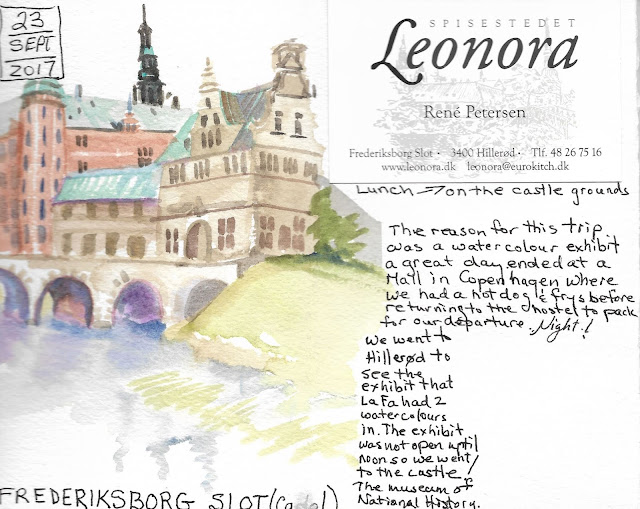 23
SEPT
2017
SPISESTEDET
Leonora
René Petersen
Frederiksborg Slot · 3400 Hillerød · Tlf. 48 26 75 16
www.leonora.dk leonora@eurokitch.dk
Lunch → on the castle grounds
The reason for this trip
was a watercolour exhibit
a great day ended at a
Mall in Copenhagen where
we had a hot dog & frys before
returning to the hostel to pack
for our departure. Night!
We went to
Hillerød to
see the
exhibit that
La Fa had 2
watercolours
in. The exhibit
was not open until
noon so we went
to the castle!
The museum of
National History.
FREDERIKSBORG SLOT